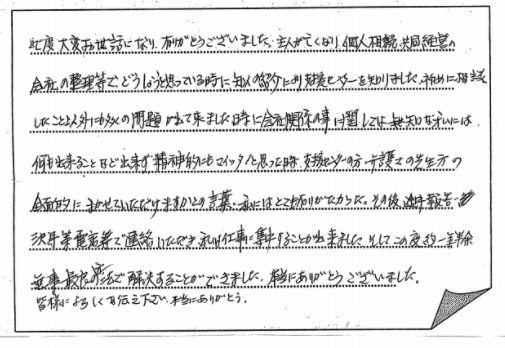 此度大変お世話になり、有りがとうございました。主人が亡くなり、個人相続、共同経営の
会社の整理等で、どうしようと思っている時に知人の紹介により支援センターを知りました。初めに相談
したこと以外にも多くの問題が出て来ました時に会社関係の事に関しては無知な私には
何も出来ることなど出来ず精神的にもマイッタと思った時、支援センターの方、弁護士の先生方の
全面的にまかせていただけますかとの言葉、私にはとても有りがたかった。その後、報告
次第等電話等で連絡いただき、私は仕事に集中することが出来ました。そしてこの度
無事最良の方法で解決することができました。本当にありがとうございました。
皆様によろしくお伝え下さい。本当にありがとう。